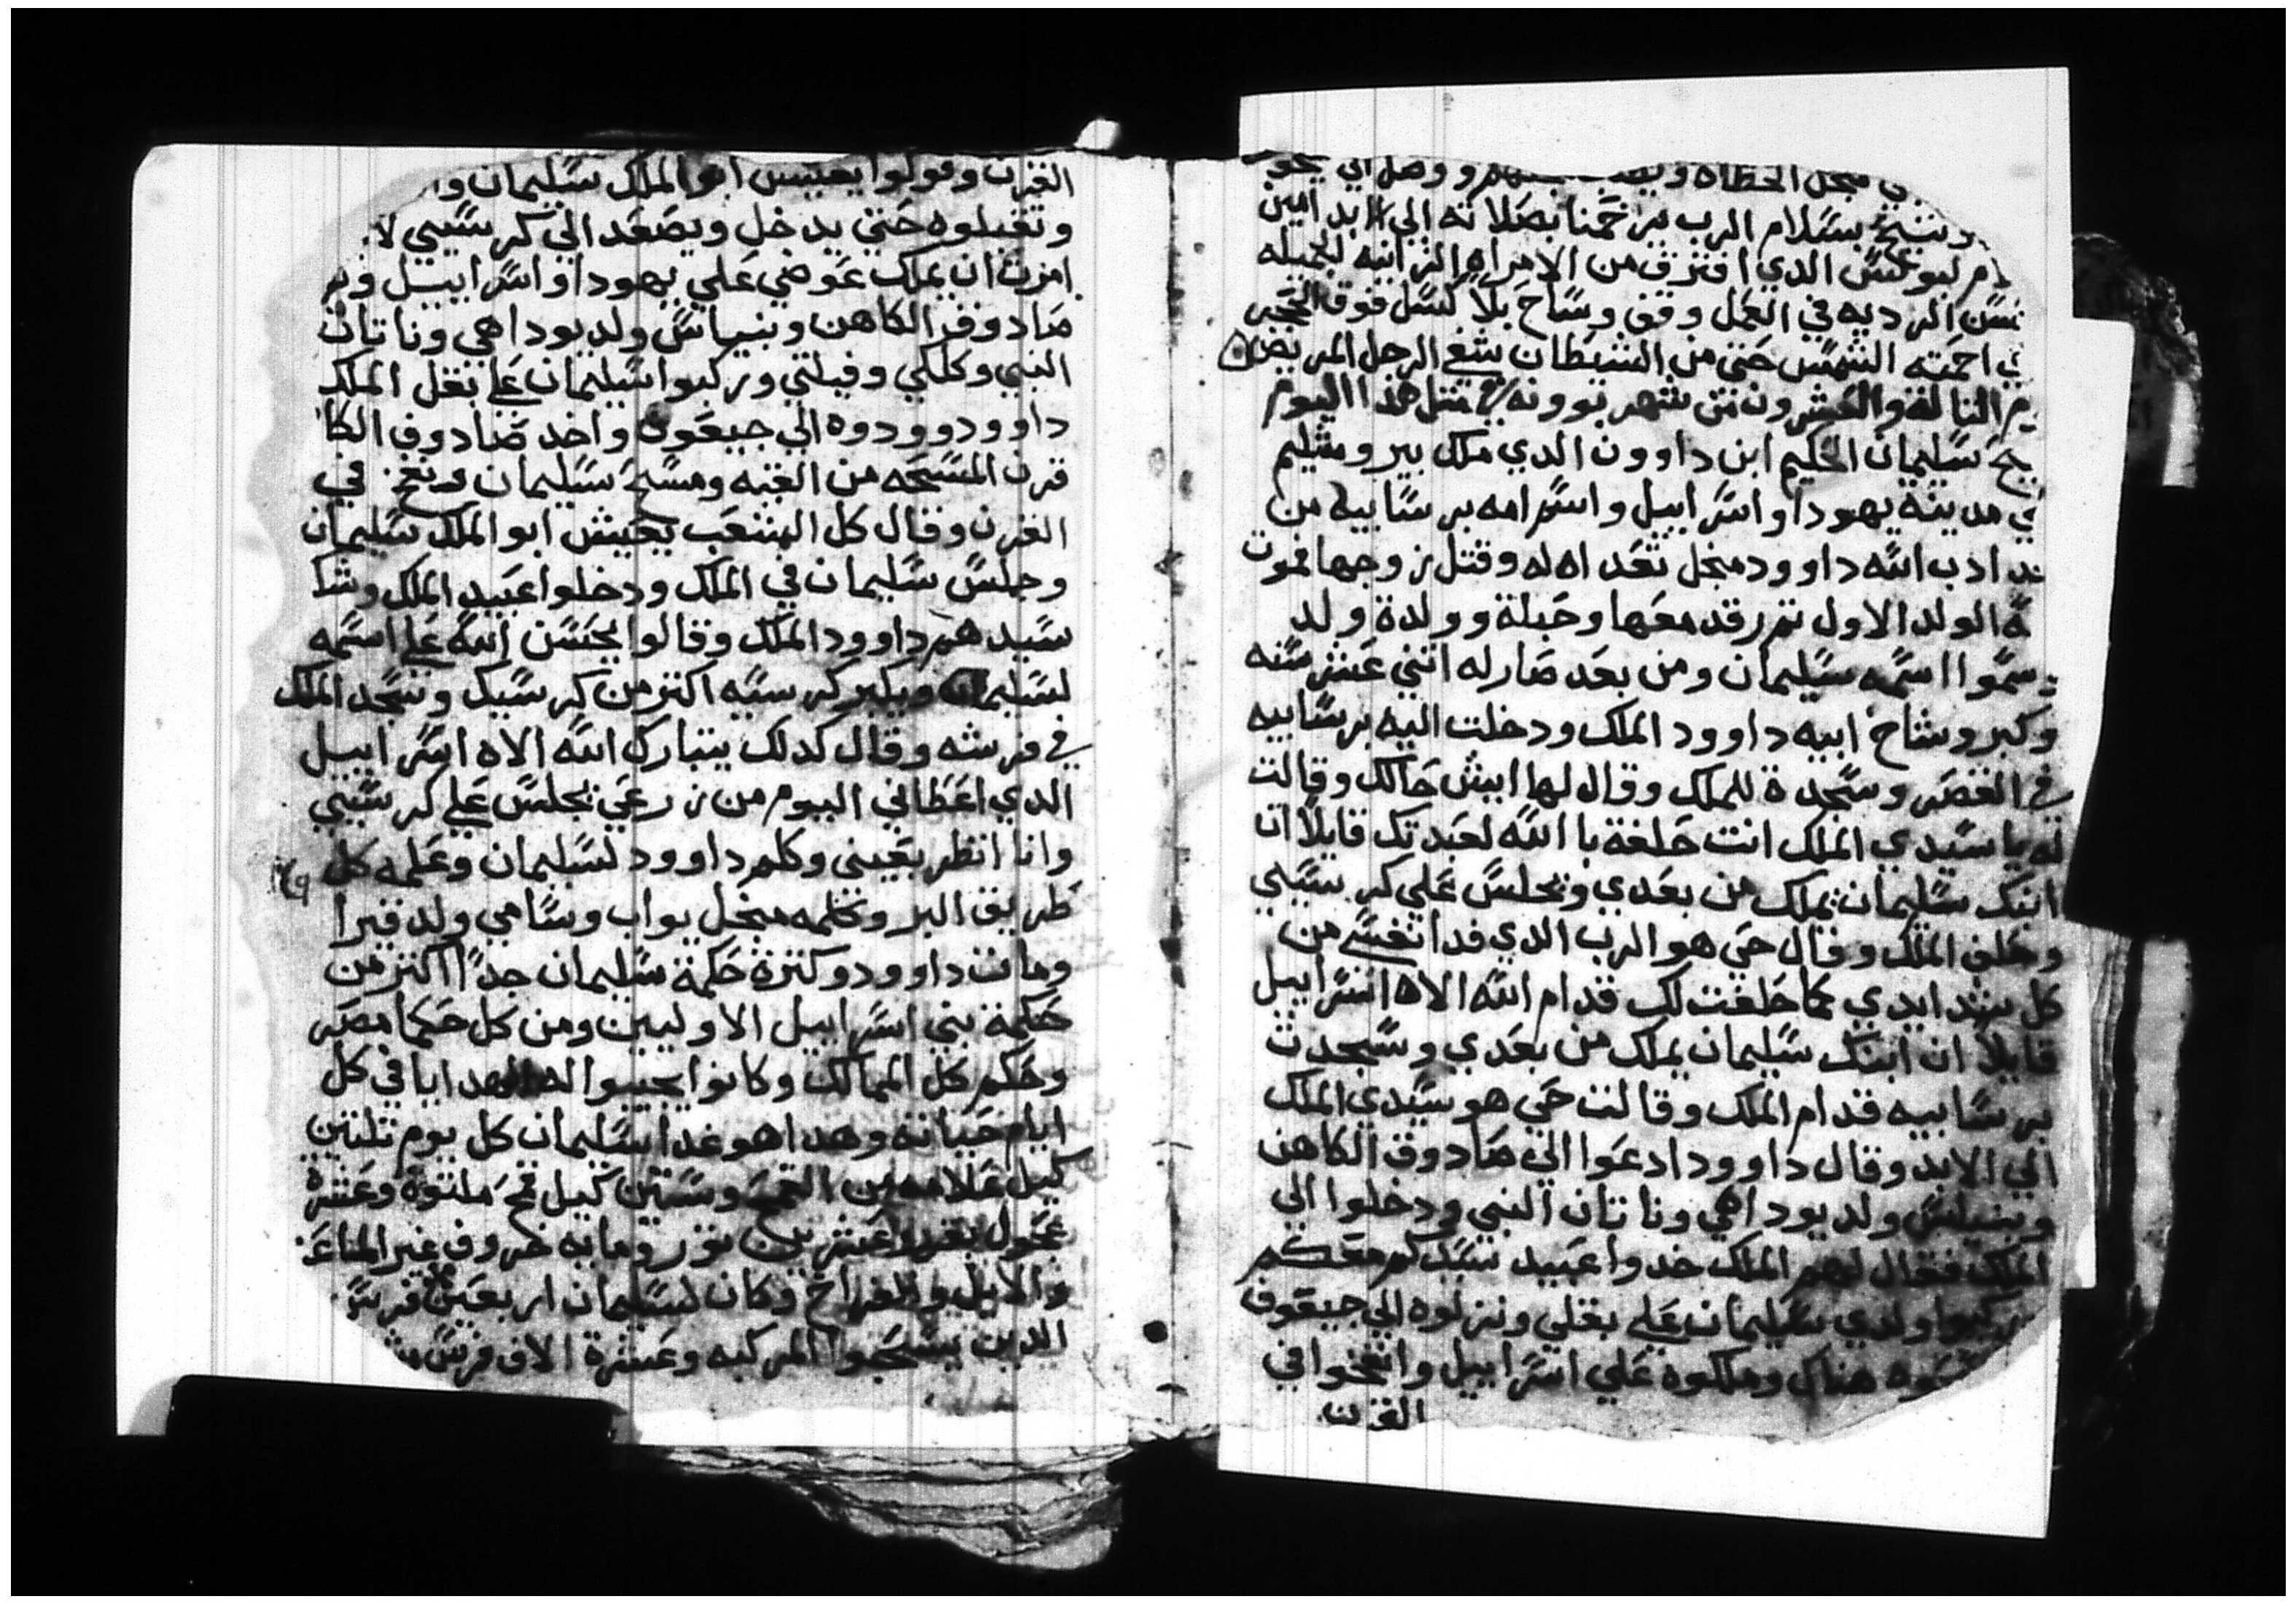 منجل الخطاه
وتنيح بسلام الرب يرحمنا بصلاته الي الابد امين
الذي افترق من الامراه الزانيه الجميله
الرديه في العمل وقف وساح بلا كسل فوق الحجر
احمته الشمس حتي من الشيطان شفع الرجل المريض
التالتة والعشرون من شهر بوونه في مثل هذا اليوم
سليمان الحكيم ابن داوود الدي ملك بيروشليم
مدينة يهودا واسراييل واسم امه برسابيه من
ادب الله داوود منجل تعداه له وقتل زوجها فموت
الولد الاول تم رقد معها وحبلة وولدة ولد
سموا اسمه سليمان ومن بعد صار له اتني عشر سنه
وكبر وشاخ ابيه داوود الملك ودخلت اليه برسابيه
في القصر وسجدة للملك وقال لها ايش حالك وقالت
له يا سيدي الملك انت حلفة با الله لعبدتك قايلا ان
ابنك سليمان يملك من بعدي ويجلس علي كرسيي
وحلف الملك وقال حي هو الرب الدي فدا نفسي من
كل شد ايدي كما حلفت لك قدام الله الاه اسراييل
قايلا ان ابنك سليمان يملك من بعدي وسجدت
برسابيه قدام الملك وقالت حي هو سيدي الملك
الي الابد وقال داوود ادعوا الي صادوق الكاهن
وبنياس ولد يوداهي وناتان النبي ودخلوا الي
الملك فقال لهم الملك خدوا عبيد سيدكم معكم
ركبوا ولدي سليمان علي بغلي ونزلوه الي جيعون
هناك وملكوه علي اسراييل وانفخوا في
القرن
القرن وقولوا يعيش ابوا الملك سليمان
وتقبلوه حتي يدخل ويصعد الي كرسيي لا
امرت ان يملك عوضي علي يهودا واسراييل
صادوق الكاهن وبنياس ولد يوداهي وناتان
النبي وكللي وفيلتي وركبوا سليمان علي بغل الملك
داوود وودوه الي جيعون واخد صادوق الكا
قرن المسحه من القبه ومسح سليمان ونفخ في
القرن وقال كل الشعب يعيش ابوا الملك سليمان
وجلس سليمان في الملك ودخلوا عبيد الملك وشك
سيدهم داوود الملك وقالوا يحسن الله علي اسمه
لسليمان ويكبر كرسيه اكتر من كرسيك وسجد الملك
في فرشه وقال كدلك يتبارك الله الاه اسراييل
الدي اعطاني اليوم من زرعي يجلس علي كرسيي
وانا انظر بعيني وكلم داوود لسليمان وعلمه كل
طريق البر وكلمه منجل يواب وسامي ولد قيرا
ومات داوود وكترة حكمة سليمان جدا اكتر من
حكمة بني اسراييل الاوليين ومن كل حكما مصر
وحكم كل الممالك وكانوا يجيبوا له الهدايا في كل
ايام حياته وهداهو غدا سليمان كل يوم تلتين
كيل علامه من القمح وستين كيل قمح ملتوة وعشرة
عجول بقر وعشرين تور ومايه خروف غير المتاع
والايل والفراخ وكان لسليمان اربعين فرس
الدين يسحبوا المركبه وعشرة الاف فرس